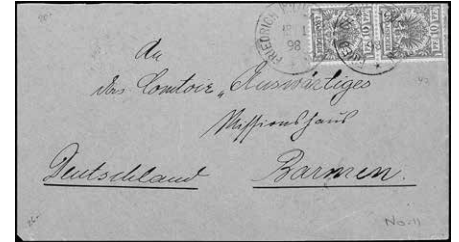 FRIEDRICH
98
10 PF 10
10 PF 10
An
das Comtoir „Auswärtiges
Missionshaus
Deutschland Barmen.
No. 11